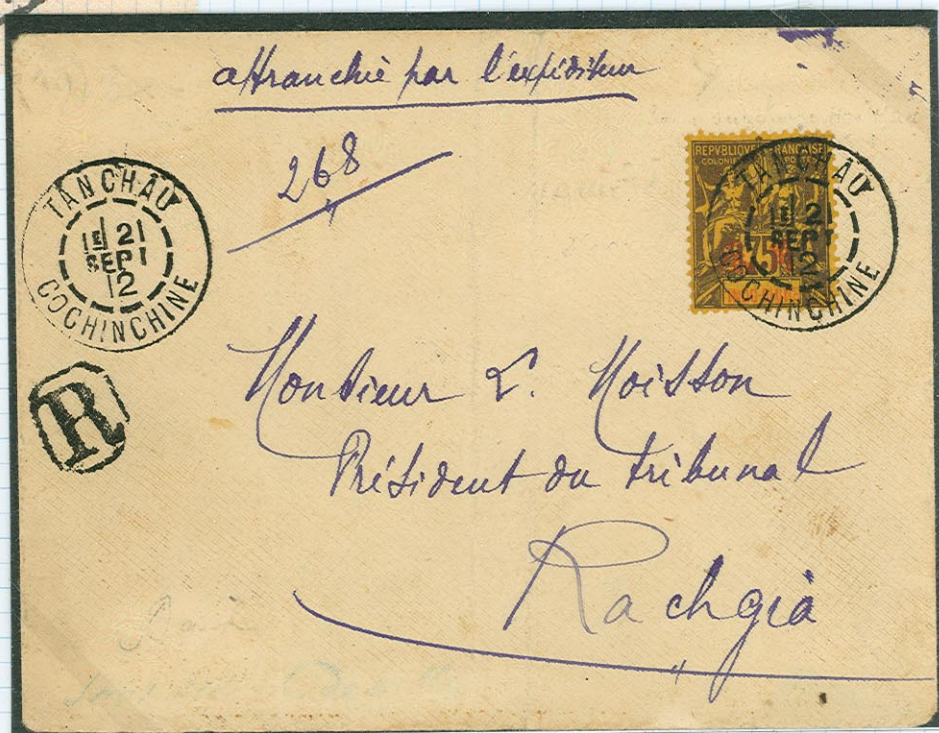 affranchie par l'expéditeur
268
TANCHAU
1E 21
SEPT
12
COCHINCHINE
REPVBLIQVE FRANÇAISE
COLONIES POSTES
75
TANCHAU
1E 21
SEPT
12
COCHINCHINE
R
Monsieur L. Moisson
Président du tribunal
Rachgia